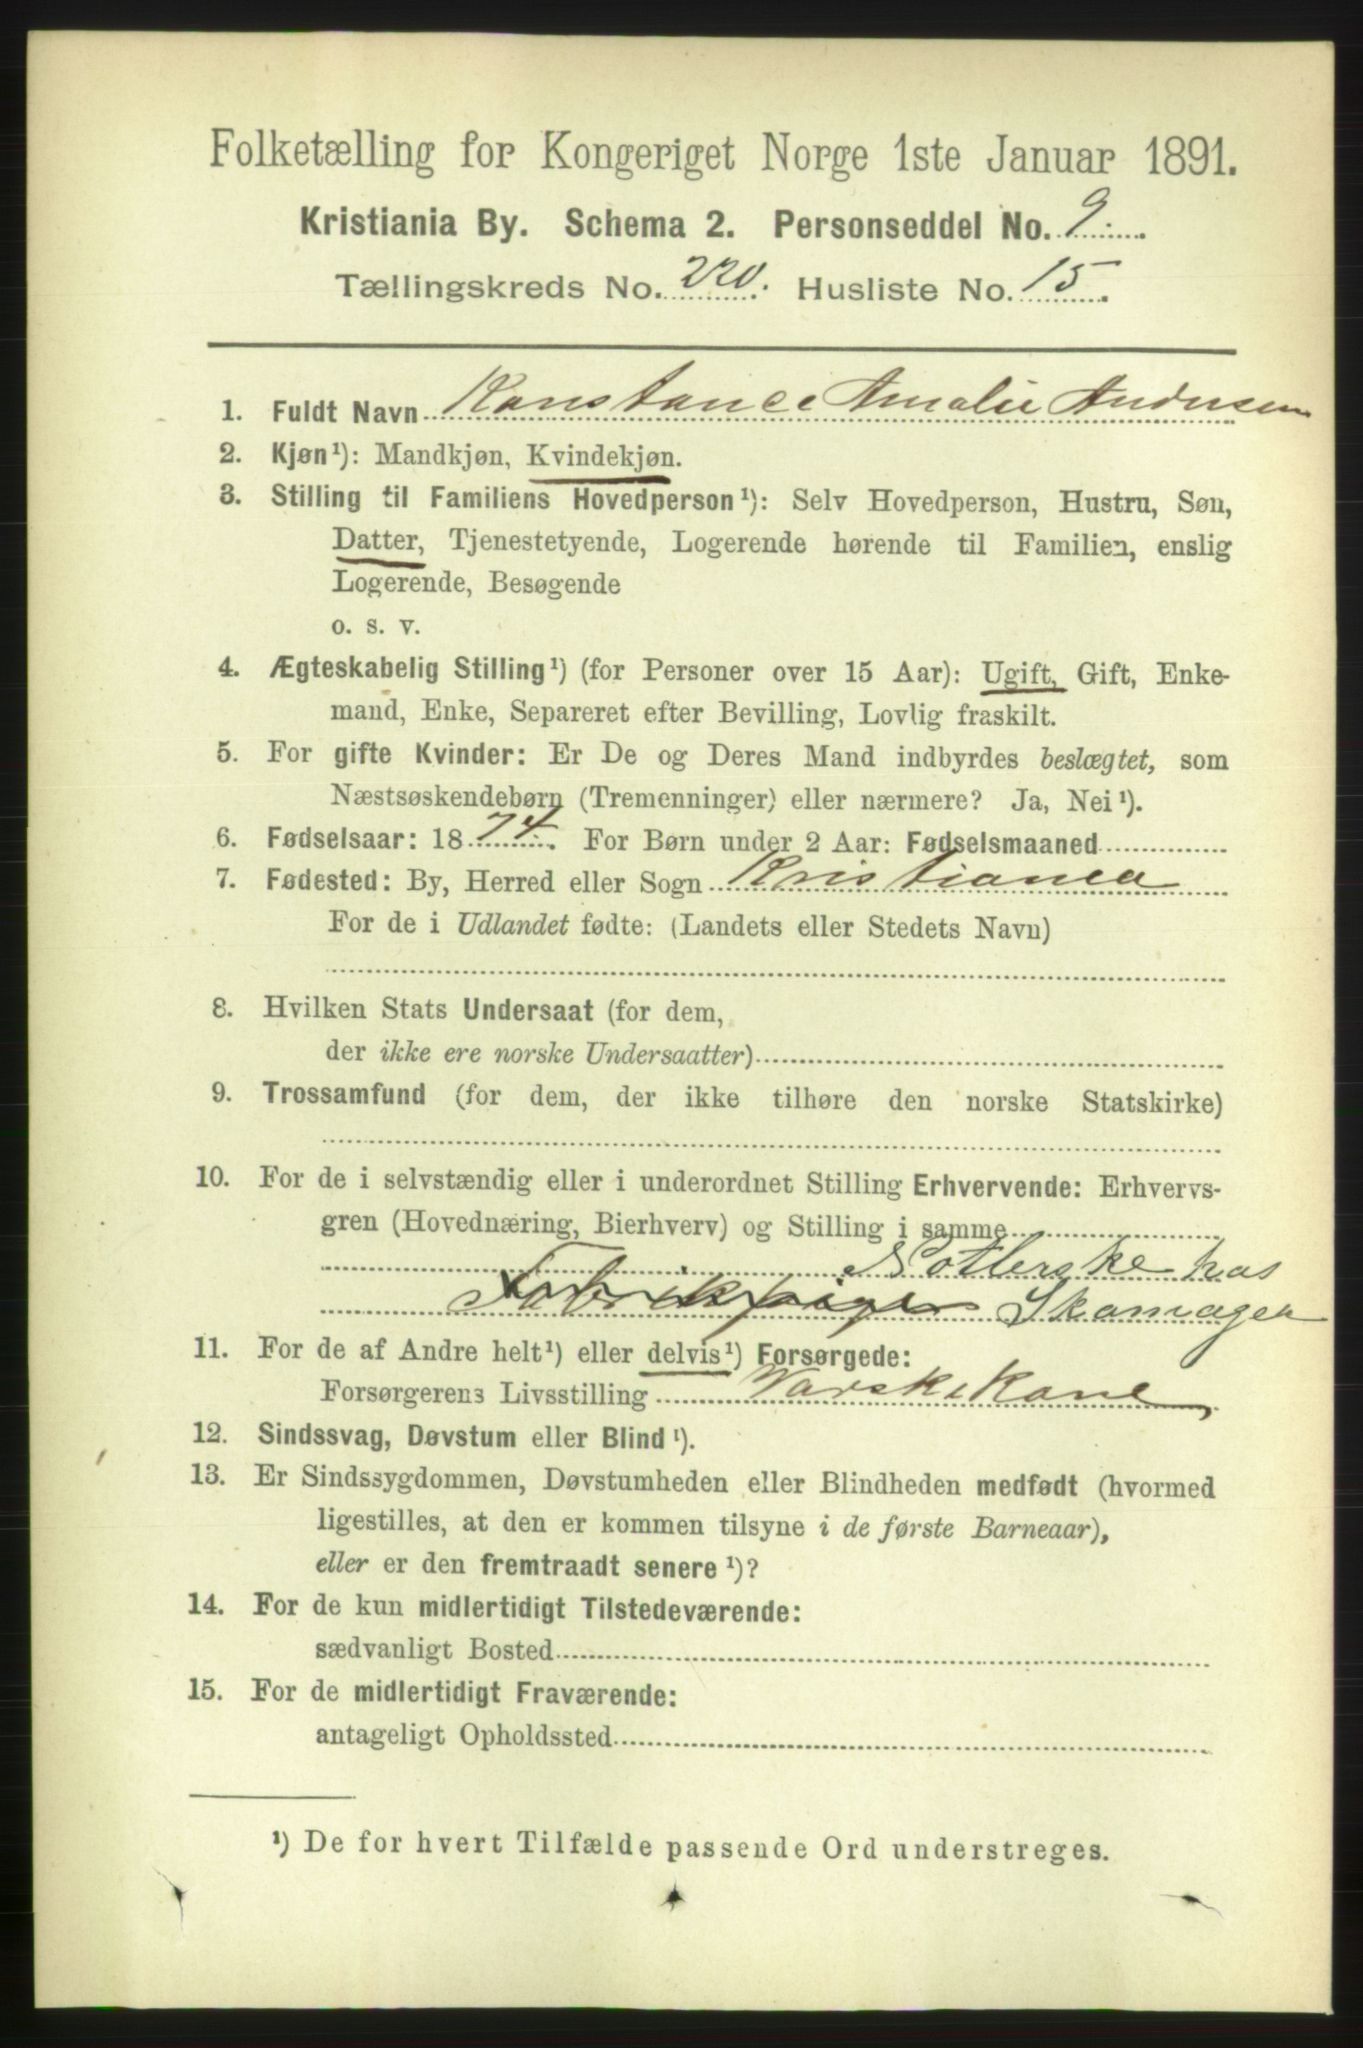 Folketælling for Kongeriget Norge 1ste Januar 1891.
Kristiania By. Schema 2. Personseddel No. 9.
Tællingskreds No. 220. Husliste No. 15.
1. Fuldt Navn Konstance Amalie Andersen
2. Kjøn¹): Mandkjøn, Kvindekjøn.
3. Stilling til Familiens Hovedperson¹): Selv Hovedperson, Hustru, Søn,
Datter, Tjenestetyende, Logerende hørende til Familien, enslig
Logerende, Besøgende
o. s. v.
4. Ægteskabelig Stilling¹) (for Personer over 15 Aar): Ugift, Gift, Enke-
mand, Enke, Separeret efter Bevilling, Lovlig fraskilt.
5. For gifte Kvinder: Er De og Deres Mand indbyrdes beslægtet, som
Næstsøskendebørn (Tremenninger) eller nærmere? Ja, Nei¹).
6. Fødselsaar: 1874. For Børn under 2 Aar: Fødselsmaaned
7. Fødested: By, Herred eller Sogn Kristiania
For de i Udlandet fødte: (Landets eller Stedets Navn)
8. Hvilken Stats Undersaat (for dem,
der ikke ere norske Undersaatter)
9. Trossamfund (for dem, der ikke tilhøre den norske Statskirke)
10. For de i selvstændig eller i underordnet Stilling Erhvervende: Erhvervs-
gren (Hovednæring, Bierhverv) og Stilling i samme
Notlerske hos
Fabrikpige Skomager
11. For de af Andre helt¹) eller delvis¹) Forsørgede:
Forsørgerens Livsstilling Varskekone,
12. Sindssvag, Døvstum eller Blind¹).
13. Er Sindssygdommen, Døvstumheden eller Blindheden medfødt (hvormed
ligestilles, at den er kommen tilsyne i de første Barneaar),
eller er den fremtraadt senere¹)?
14. For de kun midlertidigt Tilstedeværende:
sædvanligt Bosted
15. For de midlertidigt Fraværende:
antageligt Opholdssted
¹) De for hvert Tilfælde passende Ord understreges.